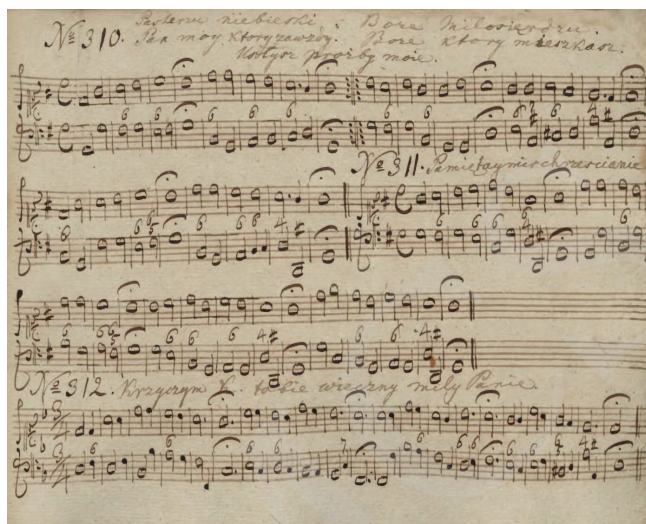 Pasterzu niebieski. Boze Milosierdzu.
No 310. Pan moy Ktory zawzdy. Boze ktory mieszkasz.
Usłysz prozby moie.
No 311. Pamietaymis chrzescianie
No 312. Krzyczym K. tobie wieczny mily Panie